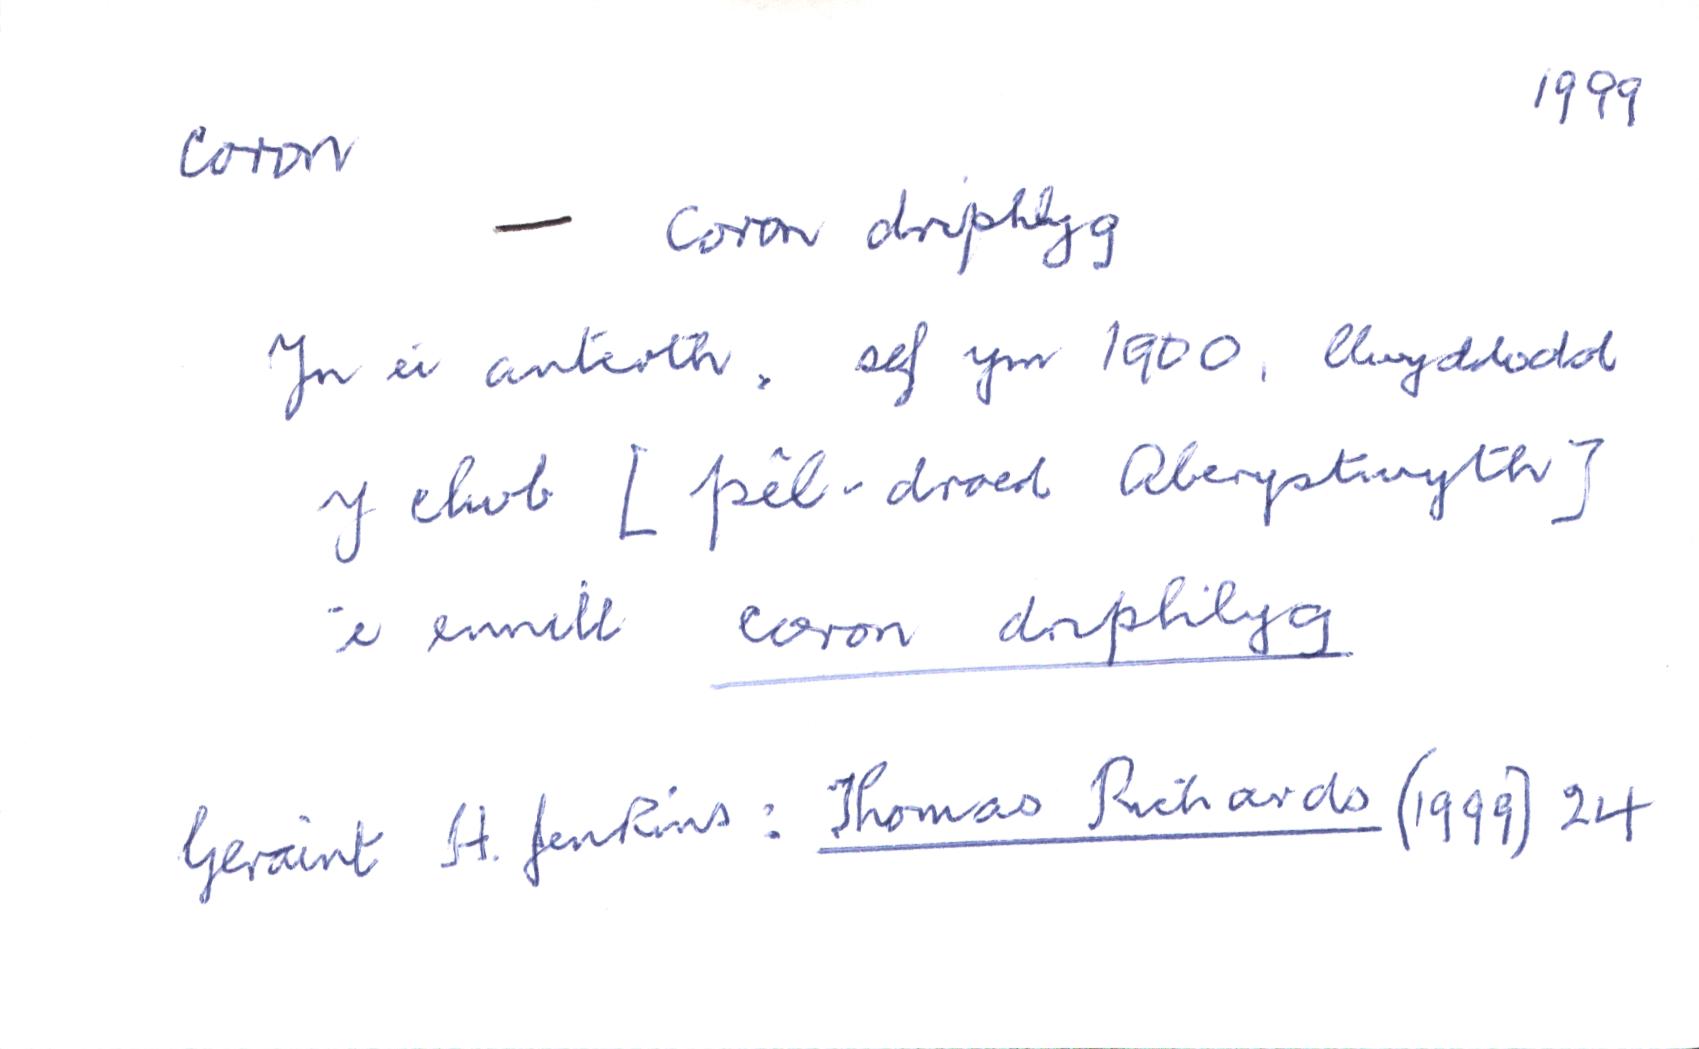 1999
coron
— coron driphlyg
Yn ei anterth, sef ym 1900, llwyddodd
y clwb [pêl-droed Aberystwyth]
i ennill coron driphlyg
Geraint H. Jenkins: Thomas Richards (1999) 24